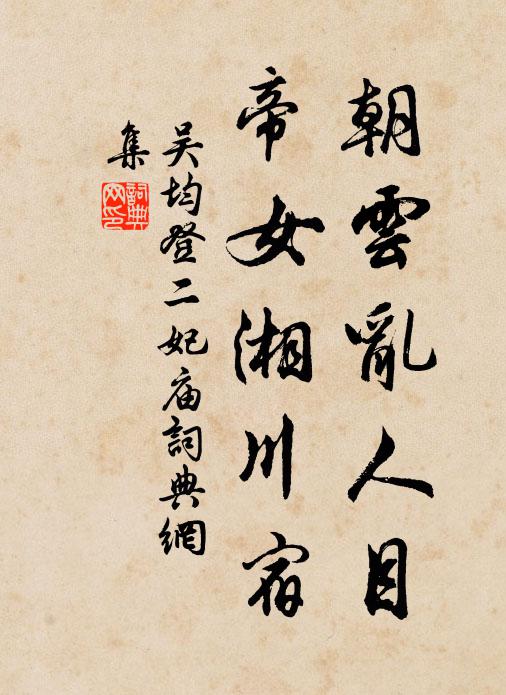 朝雲亂人目
帝女湘川宿
吴均登二妃庙詞典網
集
詞典
网印